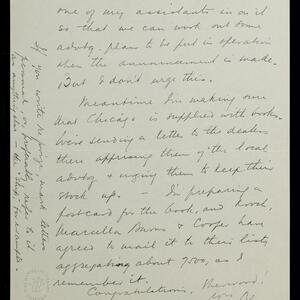 one of my assistants in on it
so that we can work out some
advtg. plans to be put in operation
when the announcement is made.
But I don't urge this.
Meantime I'm making sure
that Chicago is supplied with books.
We're sending a letter to the dealers
there apprising them of the local
advtg & urging them to keep their
stock up. — I'm preparing a
postcard for the book, and Kroch,
Marcella Burns & Cooper have
agreed to mail it to their lists
aggregating about 7500, as I
remember it.
Congratulations, Sherwood!
If you write re prize, mark letters
personal or preferably refer to it
as anything else — the "ship", for example.